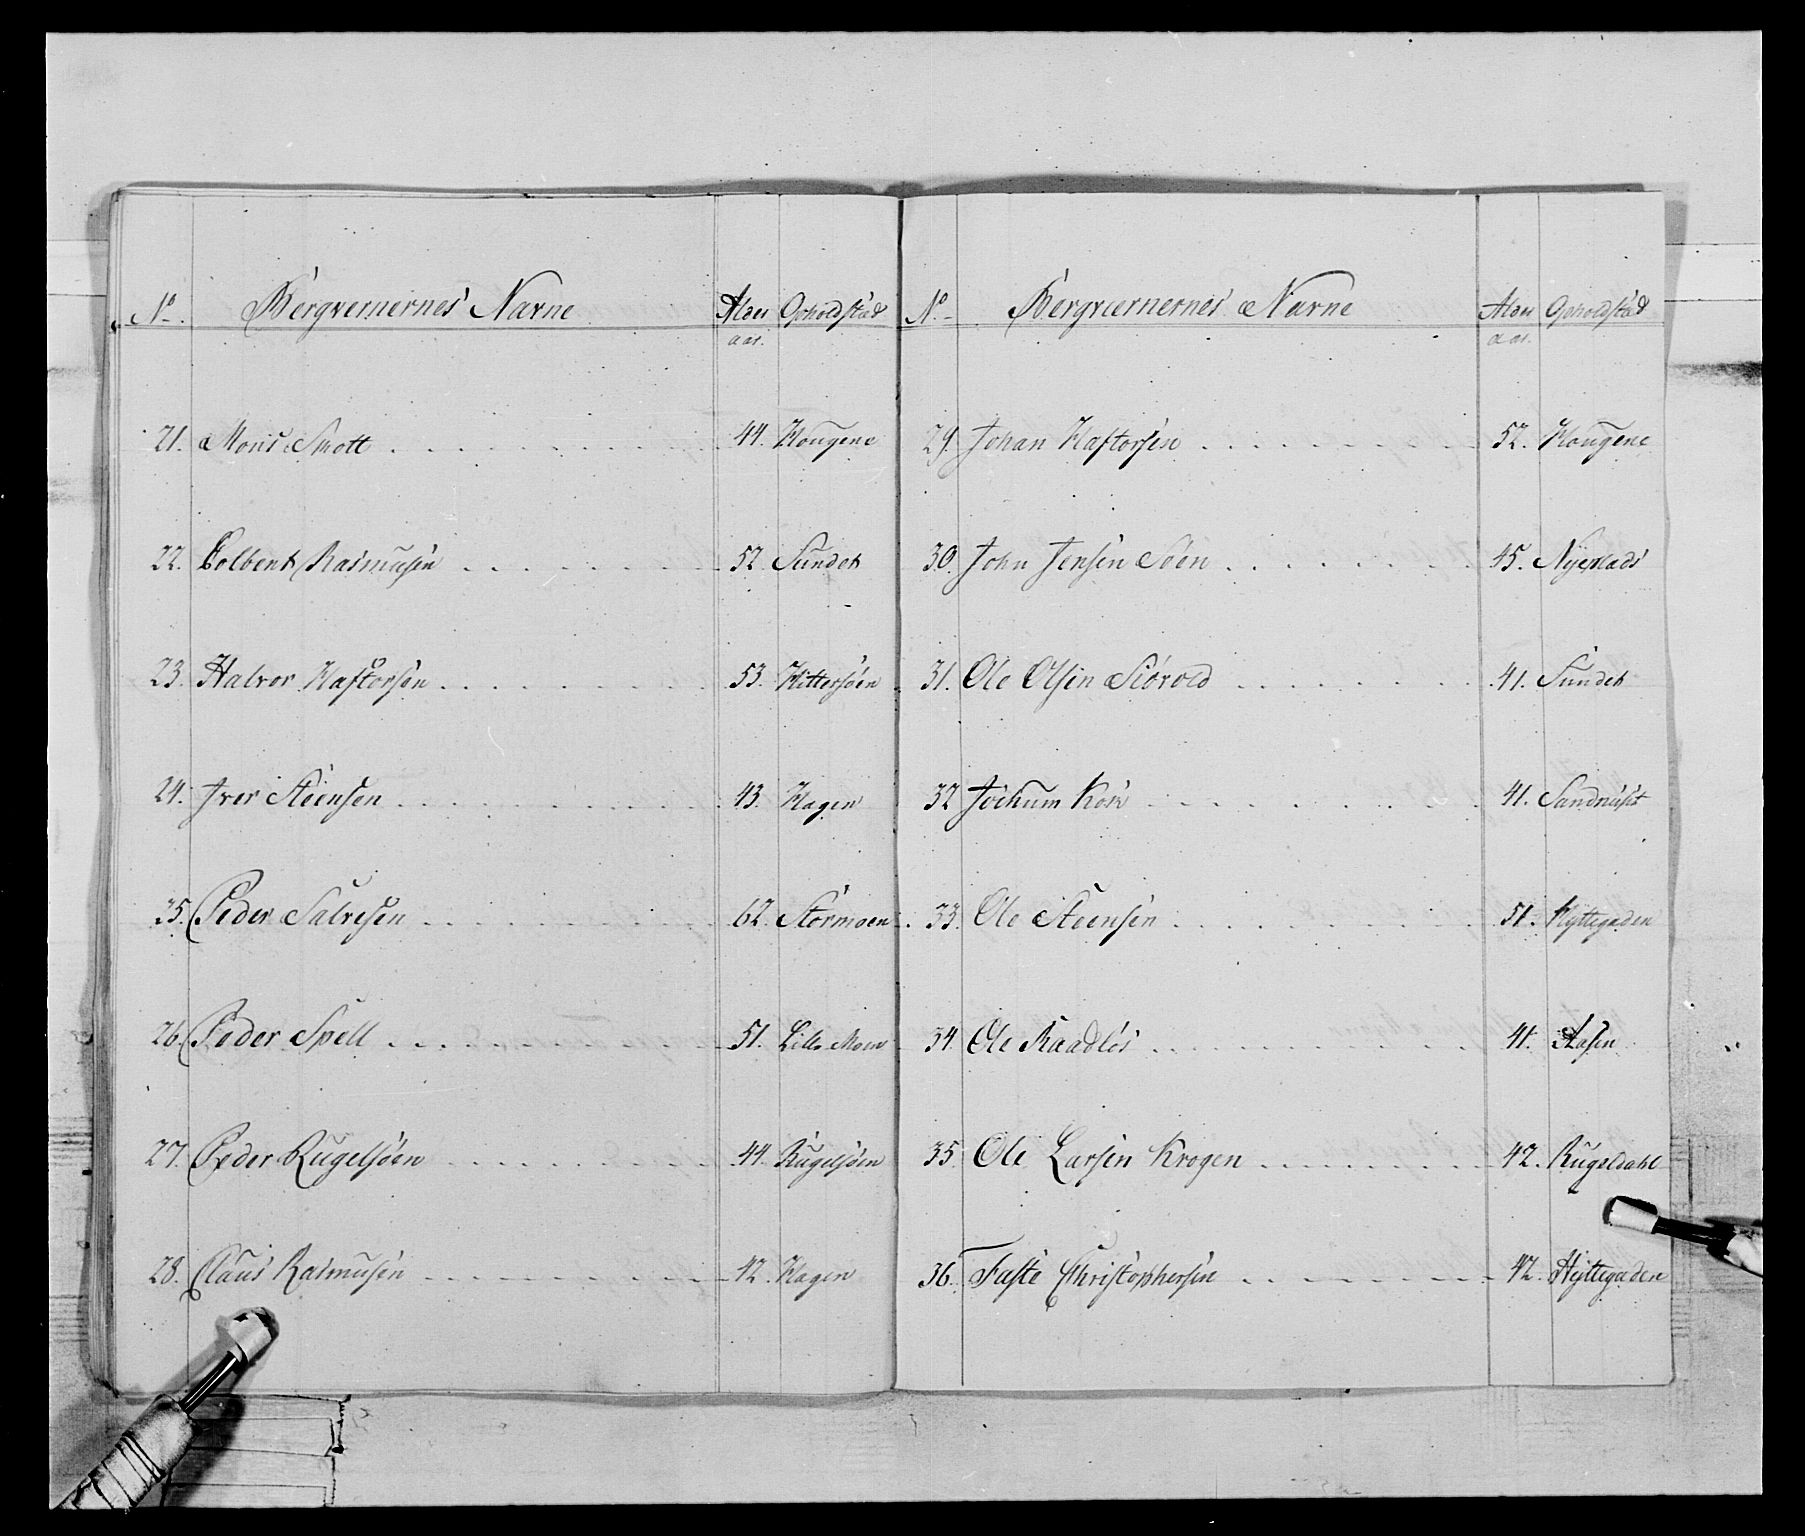 No. Bergvernernes Navne Alder Opholdstæd
aar.
21. Mons Skott 44. Hougene
22. Colbent Rasmusen 52. Sundet
23. Halvor Haftorsen 53. Hittersöen
24. Iver Steensen 43. Hagen
25. Peder Salvesen 62. Stormoen
26. Peder Spell 51. Lille Moen
27. Peder Rugelsöen 44. Rugelsöen
28. Claus Rasmusen 42. Hagen
No. Bergvernernes Navne Alder Opholdstæd
aar.
29. Johan Haftorsen 52. Hougene
30. John Jensen Soen 45. Nyeplads
31. Ole Olsen Siörvold 41. Sundet
32 Jochum Kok 41. Sandnuset
33. Ole Steensen 51. Hyttegaden
34. Ole Raadlös 41. Aasen
35. Ole Larsen Krogen 42. Rugeldahl
36. Faste Christophersen 42. Hyttegaden